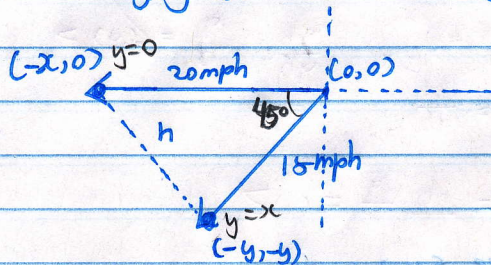 (-x,0) y=0
20mph
(0,0)
45°
h
15mph
y=x
(-y,-y)